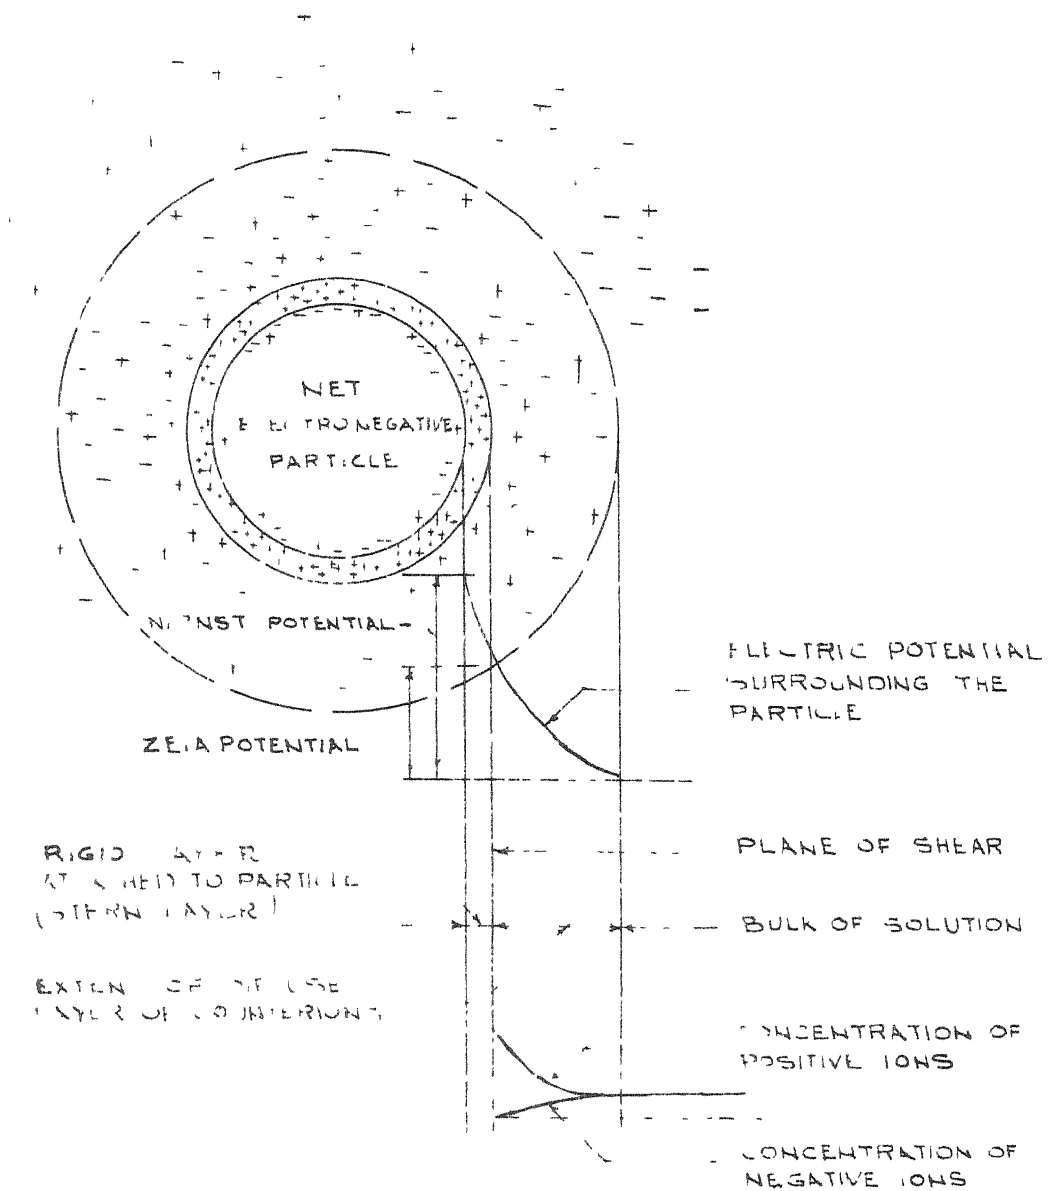 NET
ELECTRONEGATIVE
PARTICLE
NERNST POTENTIAL
ELECTRIC POTENTIAL
SURROUNDING THE
PARTICLE
ZETA POTENTIAL
RIGID LAYER
ATTACHED TO PARTICLE
(STERN LAYER)
PLANE OF SHEAR
BULK OF SOLUTION
EXTENT OF DIFFUSE
LAYER OF COUNTERIONS
CONCENTRATION OF
POSITIVE IONS
CONCENTRATION OF
NEGATIVE IONS